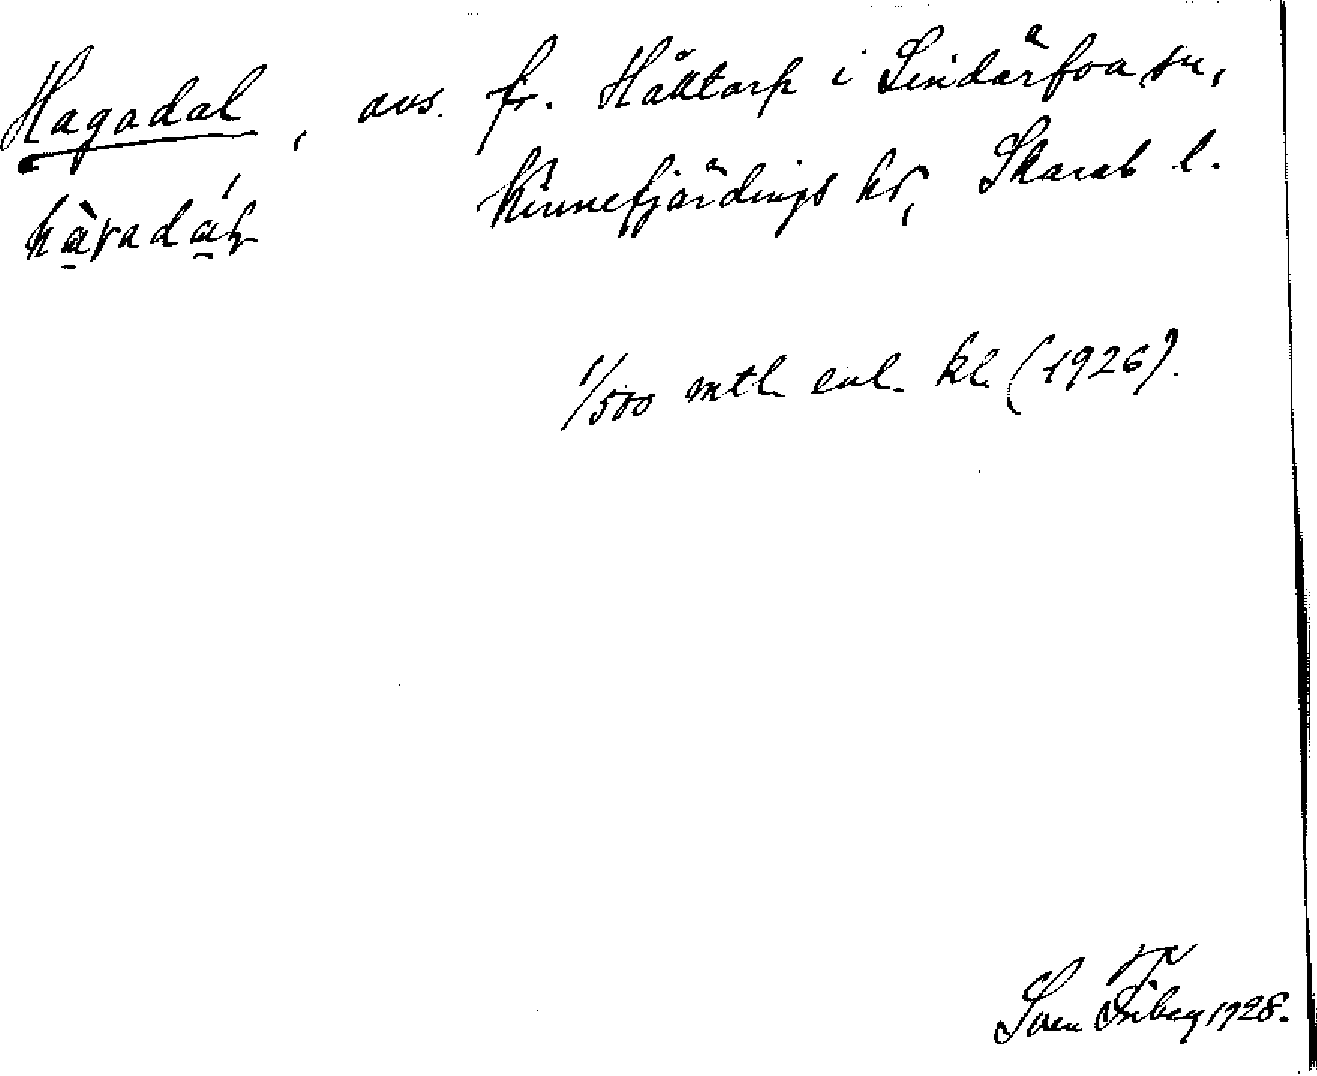 Hagadal, avs. fr. Håltarp i Sindärfva sn,
hàgadál Kinnefjärdings hd, Skarab l.
1/500 mtl enl. kl. (1926).
Sven Friberg 1928.